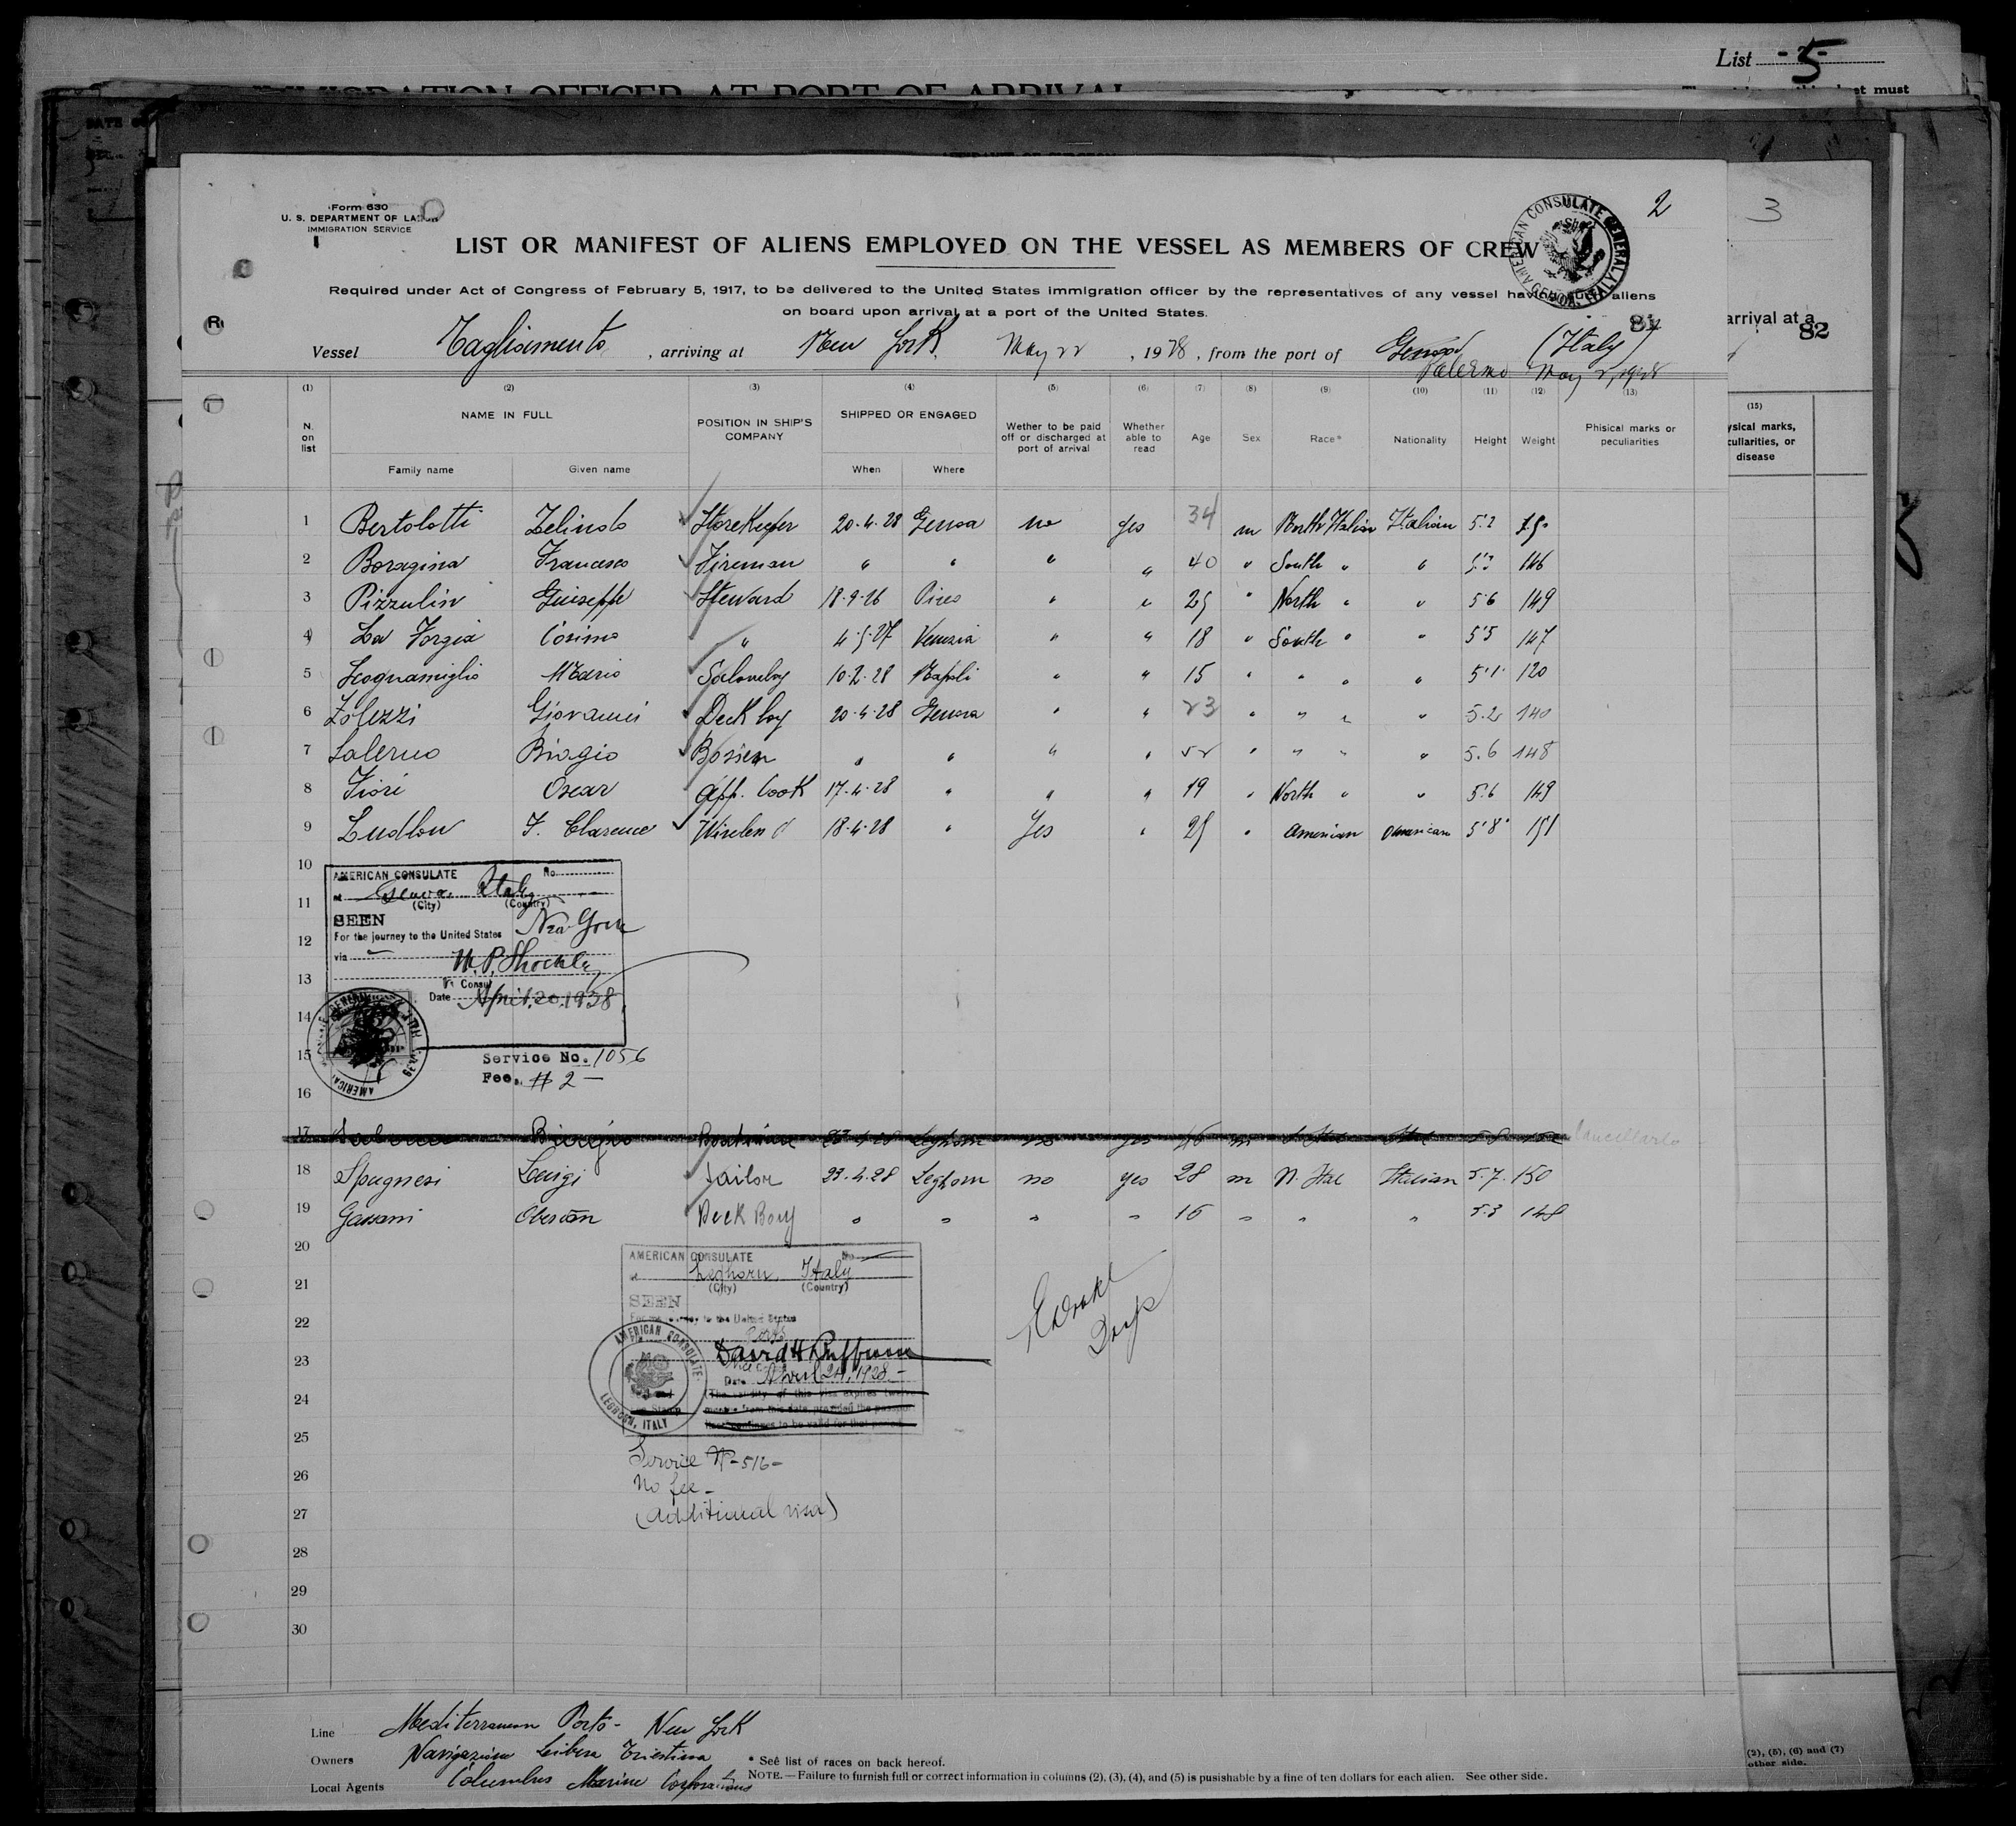 List - 5 -
IMMIGRATION OFFICER AT PORT OF ARRIVAL
Form 630
U. S. DEPARTMENT OF LABOR
IMMIGRATION SERVICE
2
3
LIST OR MANIFEST OF ALIENS EMPLOYED ON THE VESSEL AS MEMBERS OF CREW
AMERICAN CONSULATE GENERAL GENOA, ITALY
Required under Act of Congress of February 5, 1917, to be delivered to the United States immigration officer by the representatives of any vessel having such aliens
on board upon arrival at a port of the United States.
arrival at a
82
Vessel Tagliamento, arriving at New York, May 22, 1928, from the port of Genoa (Italy)
Palermo May 2, 1928
(1) (2) (3) (4) (5) (6) (7) (8) (9) (10) (11) (12) (13)
N. on list NAME IN FULL POSITION IN SHIP'S COMPANY SHIPPED OR ENGAGED Wether to be paid off or discharged at port of arrival Whether able to read Age Sex Race* Nationality Height Weight Phisical marks or peculiarities
Family name Given name When Where
(15)
ysical marks,
culiarities, or
disease
1 Bertolotti Zelindo StoreKeeper 20-4-28 Genoa no yes 34 m North Italian Italian 5.2
2 Boragina Francesco Fireman " " " " 40 " South " " 5.3 146
3 Pizzulin Guiseppe Steward 18-9-26 " " 25 " North " " 5.6 149
4 La Forgia Cosimo " 4-5-27 Venezia " " 18 " South " " 5.5 147
5 Scognamiglio Mario Saloonboy 10-2-28 Napoli " " 15 " " " " 5.1 120
6 Zolezzi Giovanni Deck boy 20-4-28 Genoa " " 23 " " " " 5.2 140
7 Salerno Biagio " " " " 52 " " " " 5.6 148
8 Fiori Oscar App. Cook 17-4-28 " " " 19 " North " " 5.6 149
9 Ludlow F. Clarence Wireless O 18-4-28 " Yes " 25 " American American 5.8 151
10
AMERICAN CONSULATE No.
at Genoa Italy
11
(City) (Country)
SEEN
For the journey to the United States New York
12
via
W. P. Shockley
13
Consul
Date April, 20, 1928
14
15
Service No. 1056
Fee. # 2 -
16
17 Biagio Boatswain 23-4-28 Leghorn no yes 46 m
18 Spagnesi Luigi sailor 23.4.28 Leghorn no yes 28 m N. Ital Italian 5.7. 150
19 Gassani Deck Boy " " " " 16 " " " 5.3 148
20
AMERICAN CONSULATE No.
21
at Leghorn, Italy
(City) (Country)
SEEN
22
For the journey to the United States
23
David H. Buffum
Date April 24, 1928 -
24
The validity of this visa expires twelve
months from this date, provided the passport
continues to be valid for that period
AMERICAN CONSULATE LEGHORN, ITALY
25
Service No - 516 -
26
No fee -
27
(additional visa)
28
29
30
Line Mediterranean Ports - New York
Owners Navigazione Libera Triestina
* See list of races on back hereof.
Local Agents Columbus Marine Corporations
NOTE.—Failure to furnish full or correct information in columns (2), (3), (4), and (5) is pusishable by a fine of ten dollars for each alien. See other side.
(2), (5), (6) and (7)
other side.